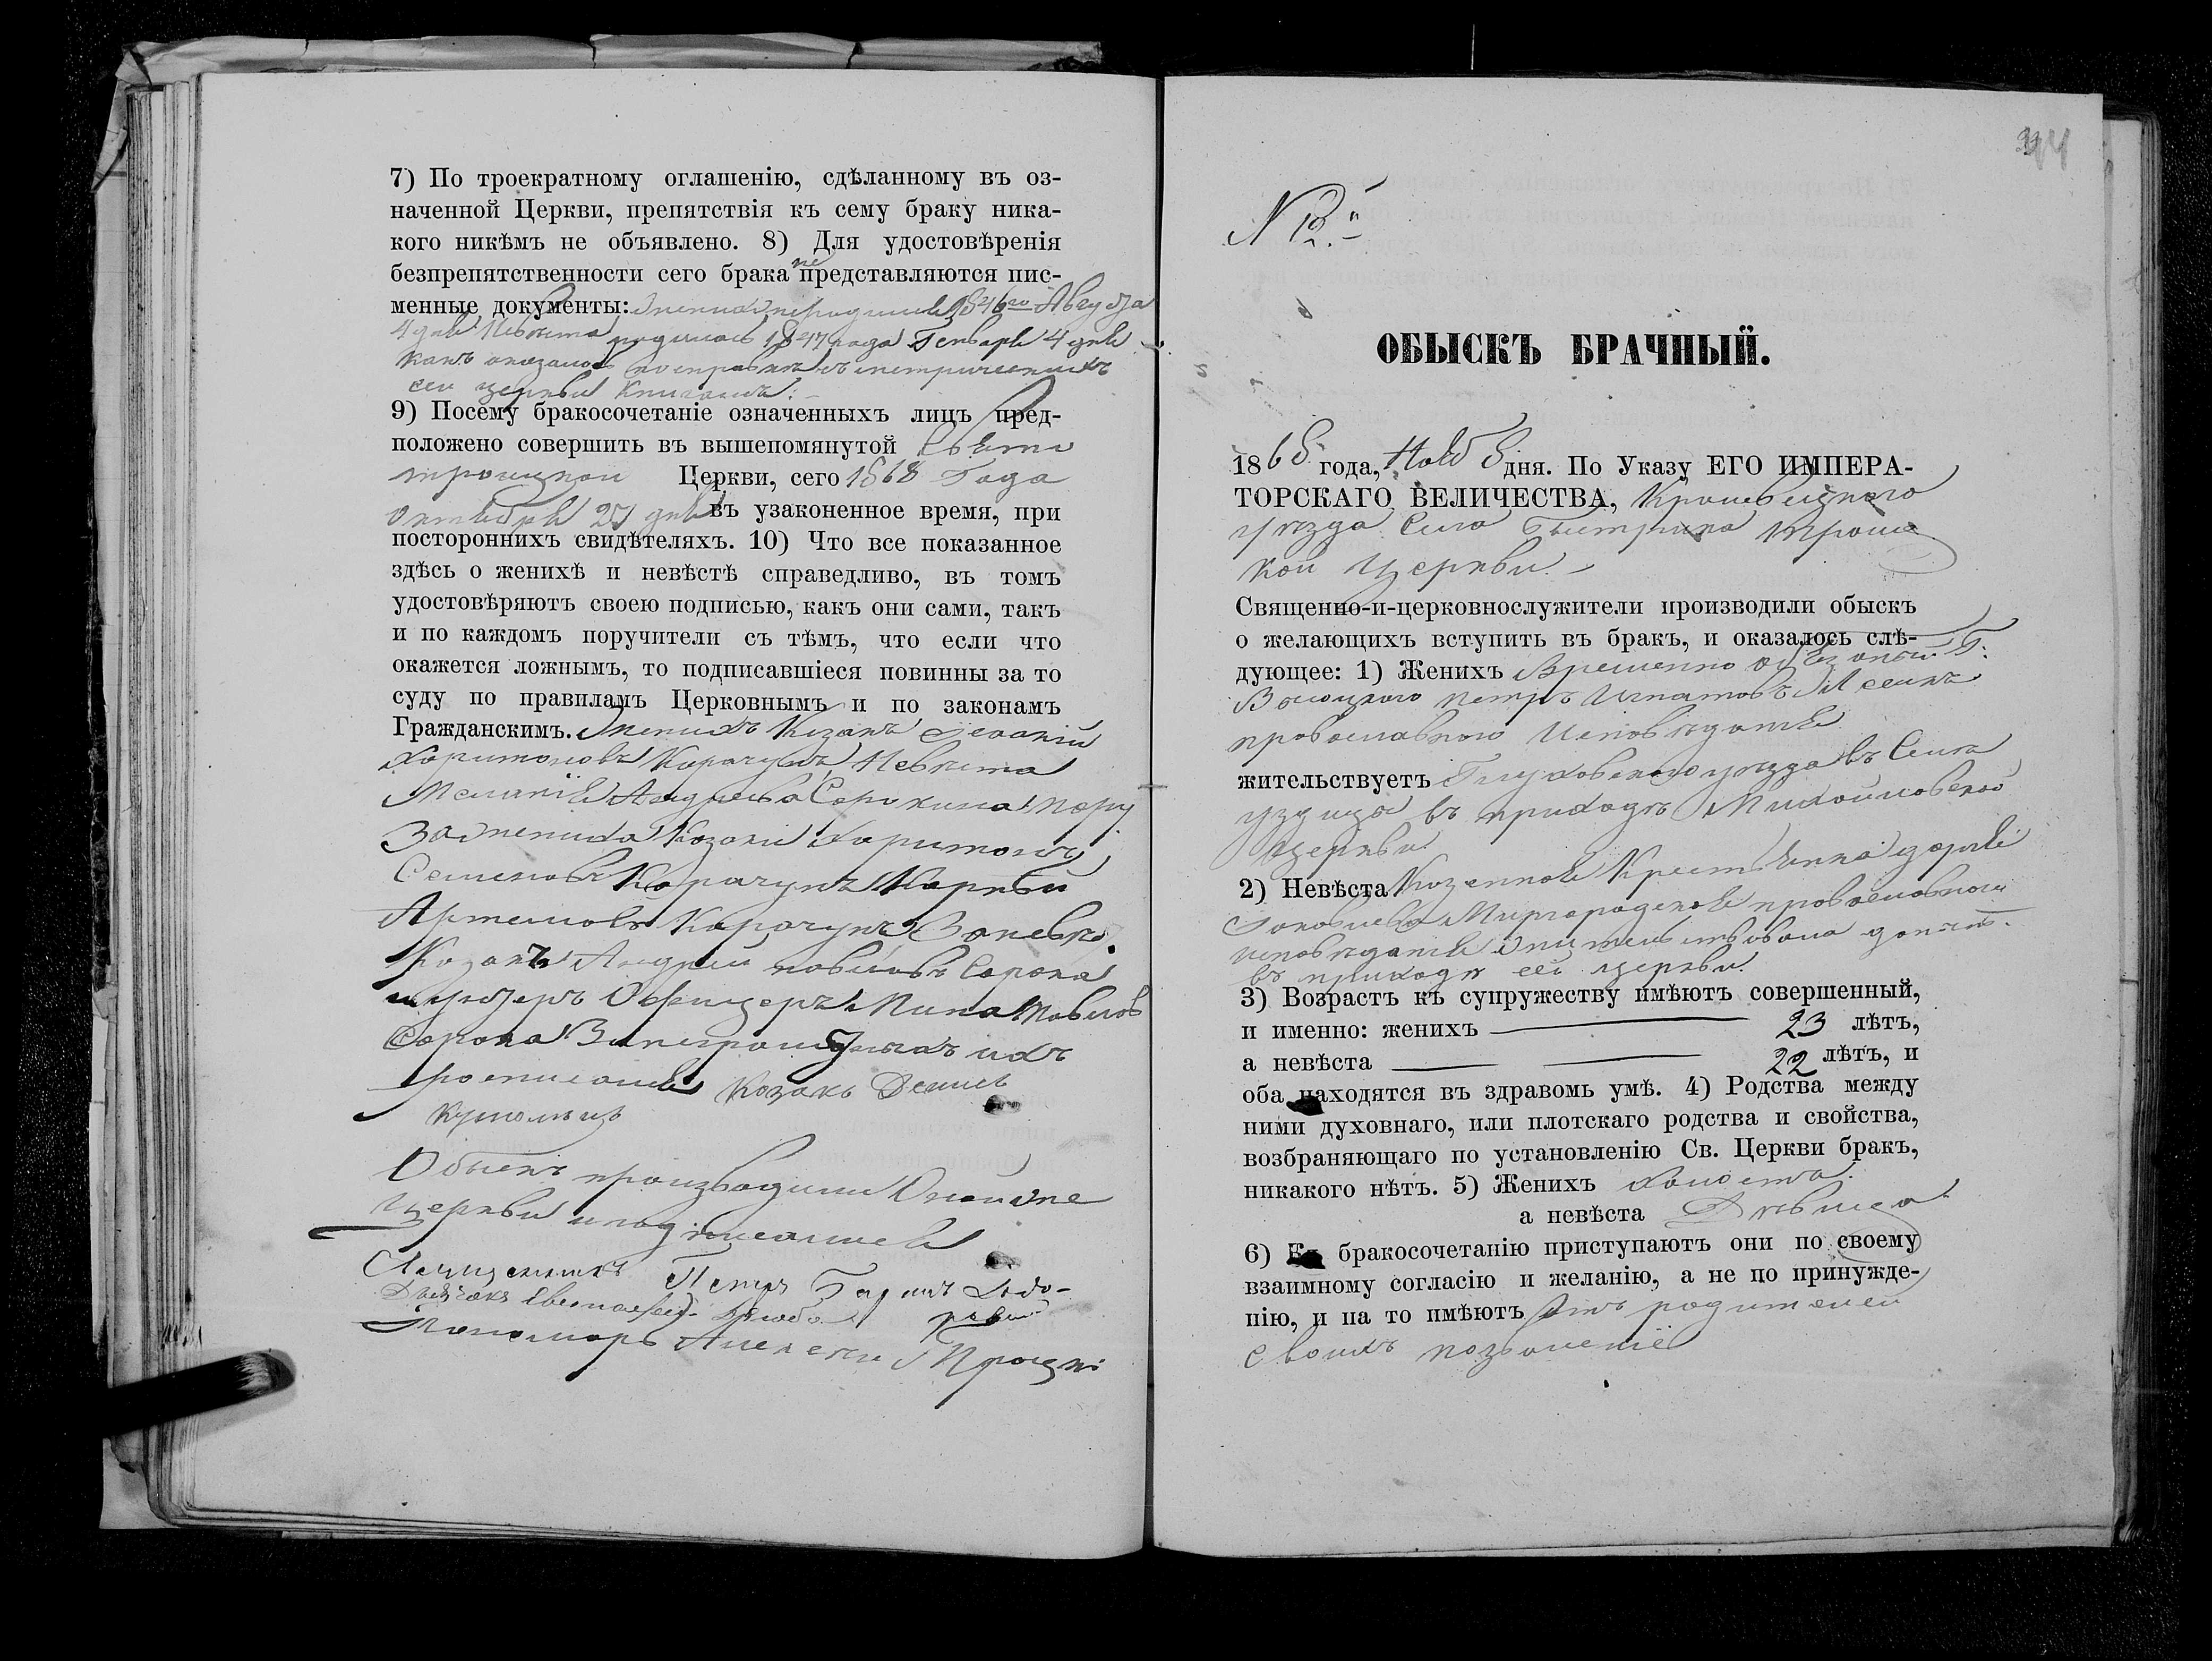 7) По троекратному оглашенію, сдѣланному въ оз-
наченной Церкви, препятствія къ сему браку ника-
кого никѣмъ не объявлено. 8) Для удостовѣренія
безпрепятственности сего брака не представляются пис-
менные документы: 1846го Августа
4 дня Невѣста родилась 1847 года Генваря 4 дня
какъ оказалось по справкѣ съ метрическихъ
сей церкви книгамъ.
9) Посему бракосочетаніе означенныхъ лицъ пред-
положено совершить въ вышепомянутой Свято
троицкой Церкви, сего 1868 Года
Октября 27 дня въ узаконенное время, при
постороннихъ свидѣтеляхъ. 10) Что все показанное
здѣсь о женихѣ и невѣстѣ справедливо, въ томъ
удостовѣряютъ своею подписью, какъ они сами, такъ
и по каждомъ поручители съ тѣмъ, что если что
окажется ложнымъ, то подписавшіеся повинны за то
суду по правиламъ Церковнымъ и по законамъ
Гражданскимъ. Женихъ Козакъ
Харитоновъ Карачунъ Невѣста
Меланія Андреева Сорокина Пору
За жениха Козаки Харитонъ
Семеновъ Карачунъ Карпъ
Артемовъ Карачунъ За невѣс.
Козакъ Андрей павловъ Сорока
и унтеръ Офицеръ Павлов
Сорока За неграмотныхъ ихъ
росписался Козакъ Денис
Обыскъ производили Оной же
Церкви и подписались
Священникъ Петръ
Дьячокъ
Пономарь Алексей
34
N 13.й
ОБЫСКЪ БРАЧНЫЙ.
1868 года, Нояб 8 дня. По Указу ЕГО ИМПЕРА-
ТОРСКАГО ВЕЛИЧЕСТВА, Кролевецкого
уѣзда Села Быстрика Троиц
кой Церкви
Священно-и-церковнослужители производили обыскъ
о желающихъ вступить въ бракъ, и оказалось слѣ-
дующее: 1) Женихъ Временно обязаный Г:
петръ Игнатовъ
православного Исповѣданія
жительствуетъ Глуховского уѣзда въ Села
въ приходѣ Михайловской
Церкви
2) Невѣста Козенная Крестьянка
Миргородская православного
исповѣданія жительствовала
въ приходѣ сей церкви.
3) Возрастъ къ супружеству имѣютъ совершенный,
и именно: женихъ 23 лѣтъ,
а невѣста 22 лѣтъ, и
оба находятся въ здравомъ умѣ. 4) Родства между
ними духовнаго, или плотскаго родства и свойства,
возбраняющаго по установленію Св. Церкви бракъ,
никакого нѣтъ. 5) Женихъ холостъ.
а невѣста Дѣвица
6) Къ бракосочетанію приступаютъ они по своему
взаимному согласію и желанію, а не по принужде-
нію, и на то имѣютъ отъ родителей
своихъ позволеніе